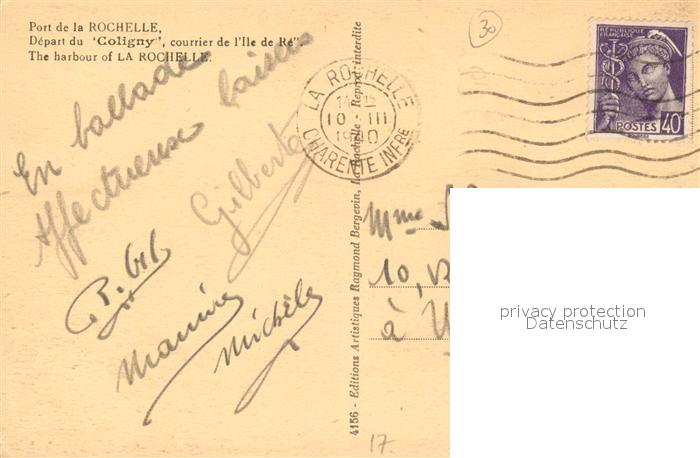 Port de la ROCHELLE,
Départ du 'Coligny', courrier de l'Ile de Ré".
The harbour of LA ROCHELLE.
30
RÉPUBLIQUE
FRANÇAISE
POSTES 40
LA ROCHELLE
10 III
CHARENTE INFRE
En ballade
Affectueux baisers
Gilberte
Michèle
4156 - Editions Artistiques Raymond Bergevin, La Rochelle - Reprod. interdite
Mme
10,
à
privacy protection
Datenschutz
17.